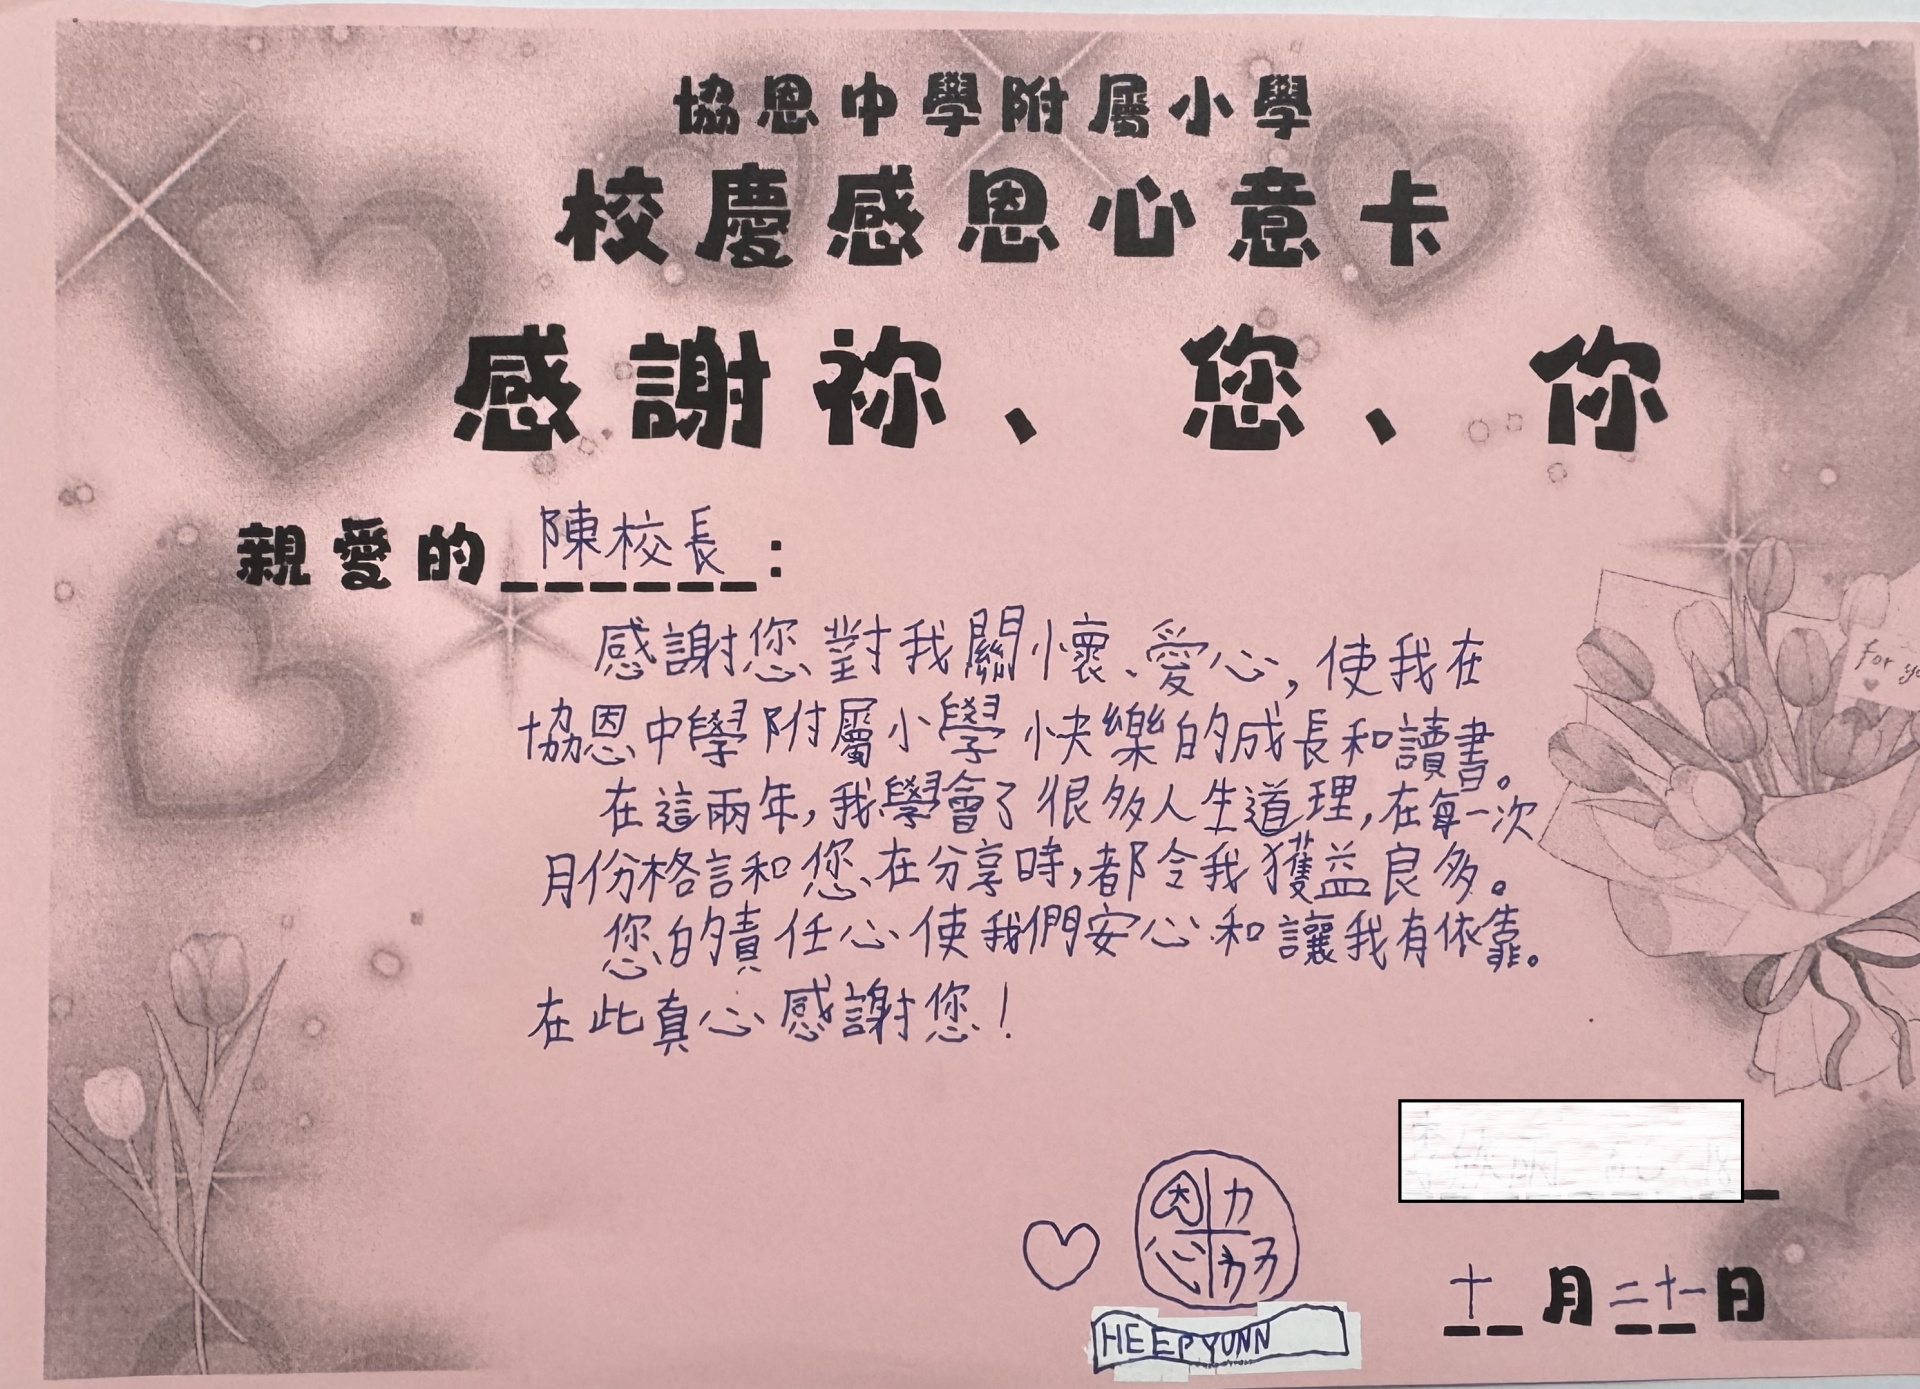 協恩中學附屬小學
校慶感恩心意卡
感謝祢、您、你
親愛的陳校長:
感謝您對我關懷、愛心,使我在
協恩中學附屬小學快樂的成長和讀書。
在這兩年,我學會了很多人生道理,在每一次
月份格言和您在分享時,都令我獲益良多。
您的責任心使我們安心和讓我有依靠。
在此真心感謝您!
For yo
恩力
心力力
HEEP YUNN
十月二十一日